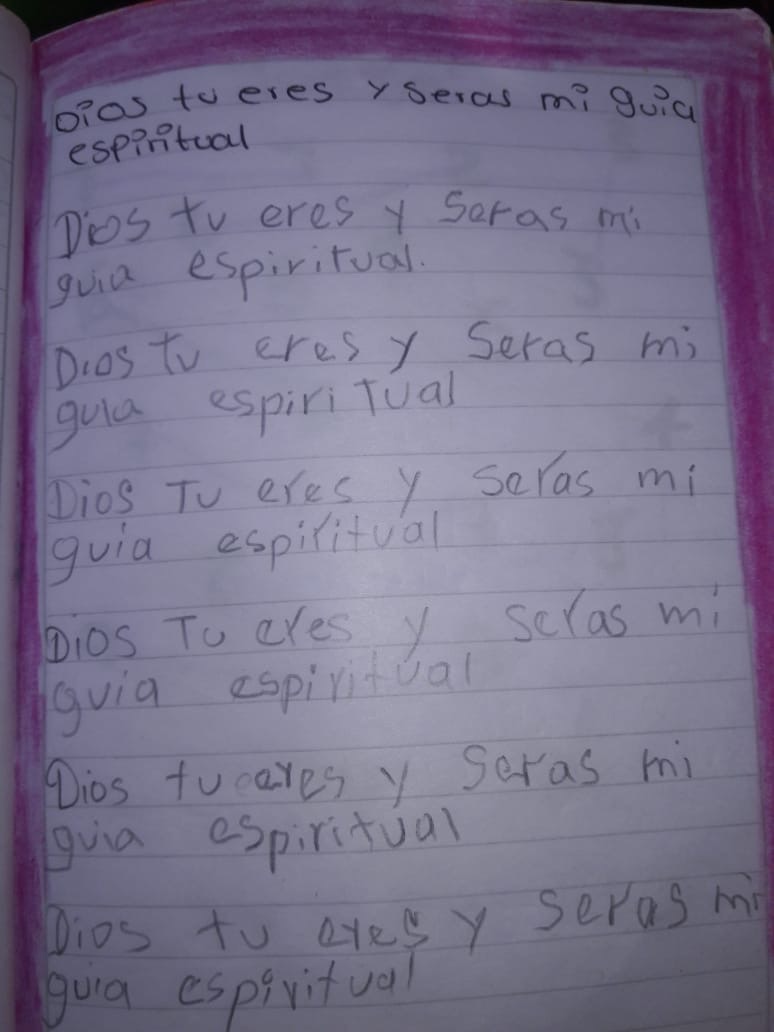 Dios tu eres y seras mi guia
espiritual
Dios tu eres y Seras mi
guia espiritual.
Dios tu eres y Seras mi
guia espiriTual
Dios Tu eres y seras mi
guia espiritual
DIOS Tu eres y seras mi
guia espiritual
Dios tu eres y Seras mi
guia espiritual
Dios tu eres y seras mi
guia espiritual